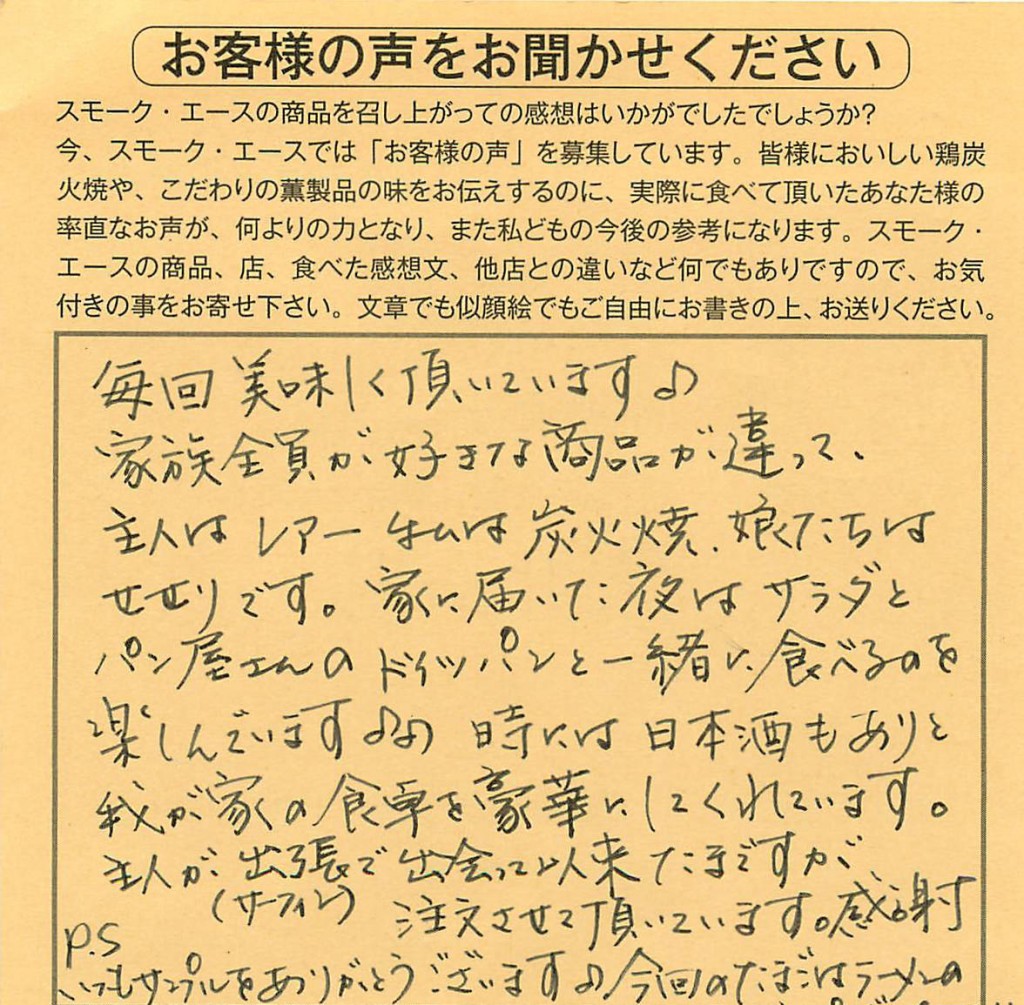 お客様の声をお聞かせください
スモーク・エースの商品を召し上がっての感想はいかがでしたでしょうか?
今、スモーク・エースでは「お客様の声」を募集しています。皆様においしい鶏炭
火焼や、こだわりの薫製品の味をお伝えするのに、実際に食べて頂いたあなた様の
率直なお声が、何よりの力となり、また私どもの今後の参考になります。スモーク・
エースの商品、店、食べた感想文、他店との違いなど何でもありですので、お気
付きの事をお寄せ下さい。文章でも似顔絵でもご自由にお書きの上、お送りください。
毎回美味しく頂いています♪
家族全員が好きな商品が違って、
主人はレアー 私は炭火焼、娘たちは
せせりです。家に届いた夜はサラダと
パン屋さんのドイツパンと一緒に食べるのを
楽しんでいます♪♪ 時には日本酒もありと
我が家の食卓を豪華にしてくれています。
主人が出張で出会って以来たまですが、
(サーフィン) 注文させて頂いています。感謝
P.S
いつもサンプルをありがとうございます♪今回のたまごはラーメンの